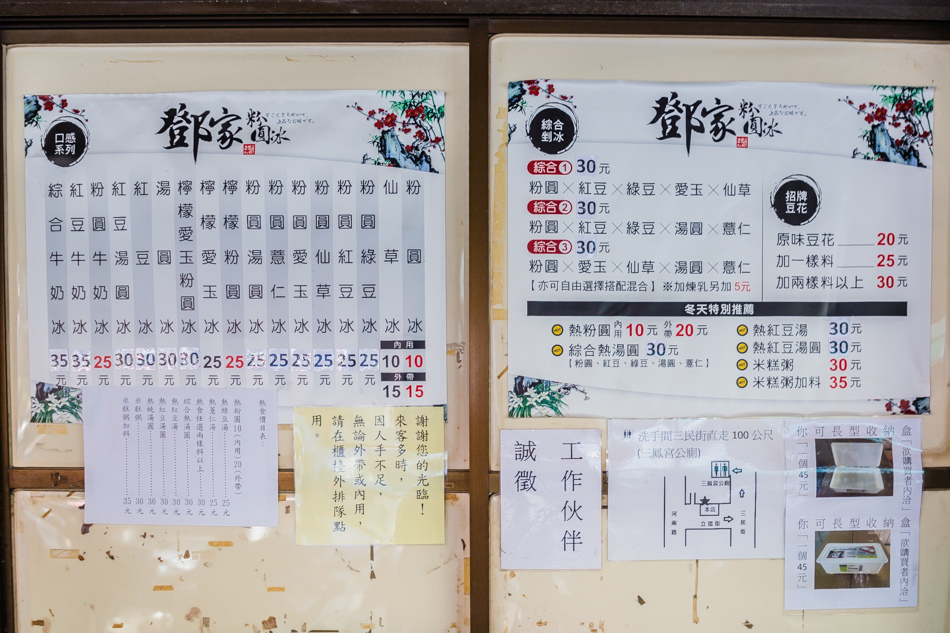 口感
系列
鄧家粉圓冰
粉圓冰 內用 10 外帶 15元
仙草冰 內用 10 外帶 15元
粉圓綠豆冰 25元
粉圓紅豆冰 25元
粉圓仙草冰 25元
粉圓愛玉冰 25元
粉圓薏仁冰 25元
粉圓湯圓冰 25元
檸檬粉圓冰 25元
檸檬愛玉冰 25元
檸檬愛玉粉圓冰 30元
湯圓冰 30元
紅豆冰 30元
紅豆湯圓冰 30元
粉圓牛奶冰 25元
紅豆牛奶冰 35元
綜合牛奶冰 35元
熱食價目表
熱粉圓10(內用)20(外帶)
熱綠豆湯………25元
熱薏仁湯………25元
熱食任選兩樣料以上…30元
綜合熱湯圓………30元
熱紅豆湯………30元
熱紅豆湯圓………30元
熱純湯圓………30元
米糕粥………30元
米糕粥加料………35元
謝謝您的光臨！
來客多時，
因人手不足，
無論外帶或內用，
請在櫃檯外排隊點
用。
綜合
剉冰
鄧家粉圓冰
綜合1 30元
粉圓×紅豆×綠豆×愛玉×仙草
綜合2 30元
粉圓×紅豆×綠豆×湯圓×薏仁
綜合3 30元
粉圓×愛玉×仙草×湯圓×薏仁
【亦可自由選擇配混合】※加煉乳另加 5元
招牌
豆花
原味豆花____20元
加一樣料____25元
加兩樣料以上 30元
冬天特別推薦
熱粉圓 內用10元 外帶20元
綜合熱湯圓 30元
【粉圓、紅豆、綠豆、湯圓、薏仁】
熱紅豆湯 30元
熱紅豆湯圓 30元
米糕粥 30元
米糕粥加料 35元
工作伙伴
誠徵
洗手間三民街直走 100 公尺
(三鳳宮公廁)
三鳳宮公廁
本店
河南路
立德街
三民街
你可長型收納盒
「一個45元」
「欲購買者內洽」
你可長型收納盒
「一個45元」
「欲購買者內洽」